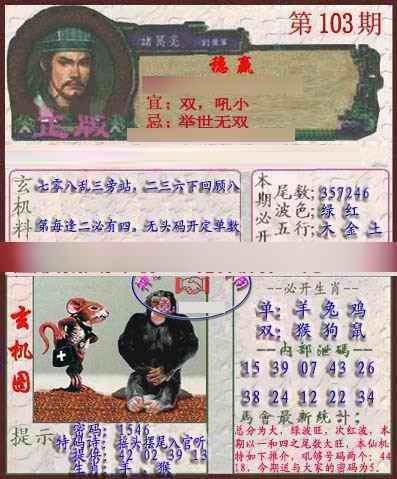 第103期
諸葛亮
穩赢
宜：双，吼小
忌：举世无双
正版
玄机料
七零八乱三旁站，二三六下回顾八
第每逢二必有四。无头码开定单数
本期必开
尾数：357246
波色：绿 红
五行：木 金 土
玄机图
--必开生肖--
单：羊 兔 鸡
双：猴 狗 鼠
--内部泄码--
15 39 07 43 26
38 24 12 22 34
馬會最新統計：
总分为大，绿波旺，次红波，本
期以一和四之尾数大旺，本仙机
特如下推介，吼够号码两个：44
18，今期送与大家的密码为5.
提示
密码：1546
特码诗：摇头摆尾入官听
提得：42 02 39 13
生肖：羊、猴